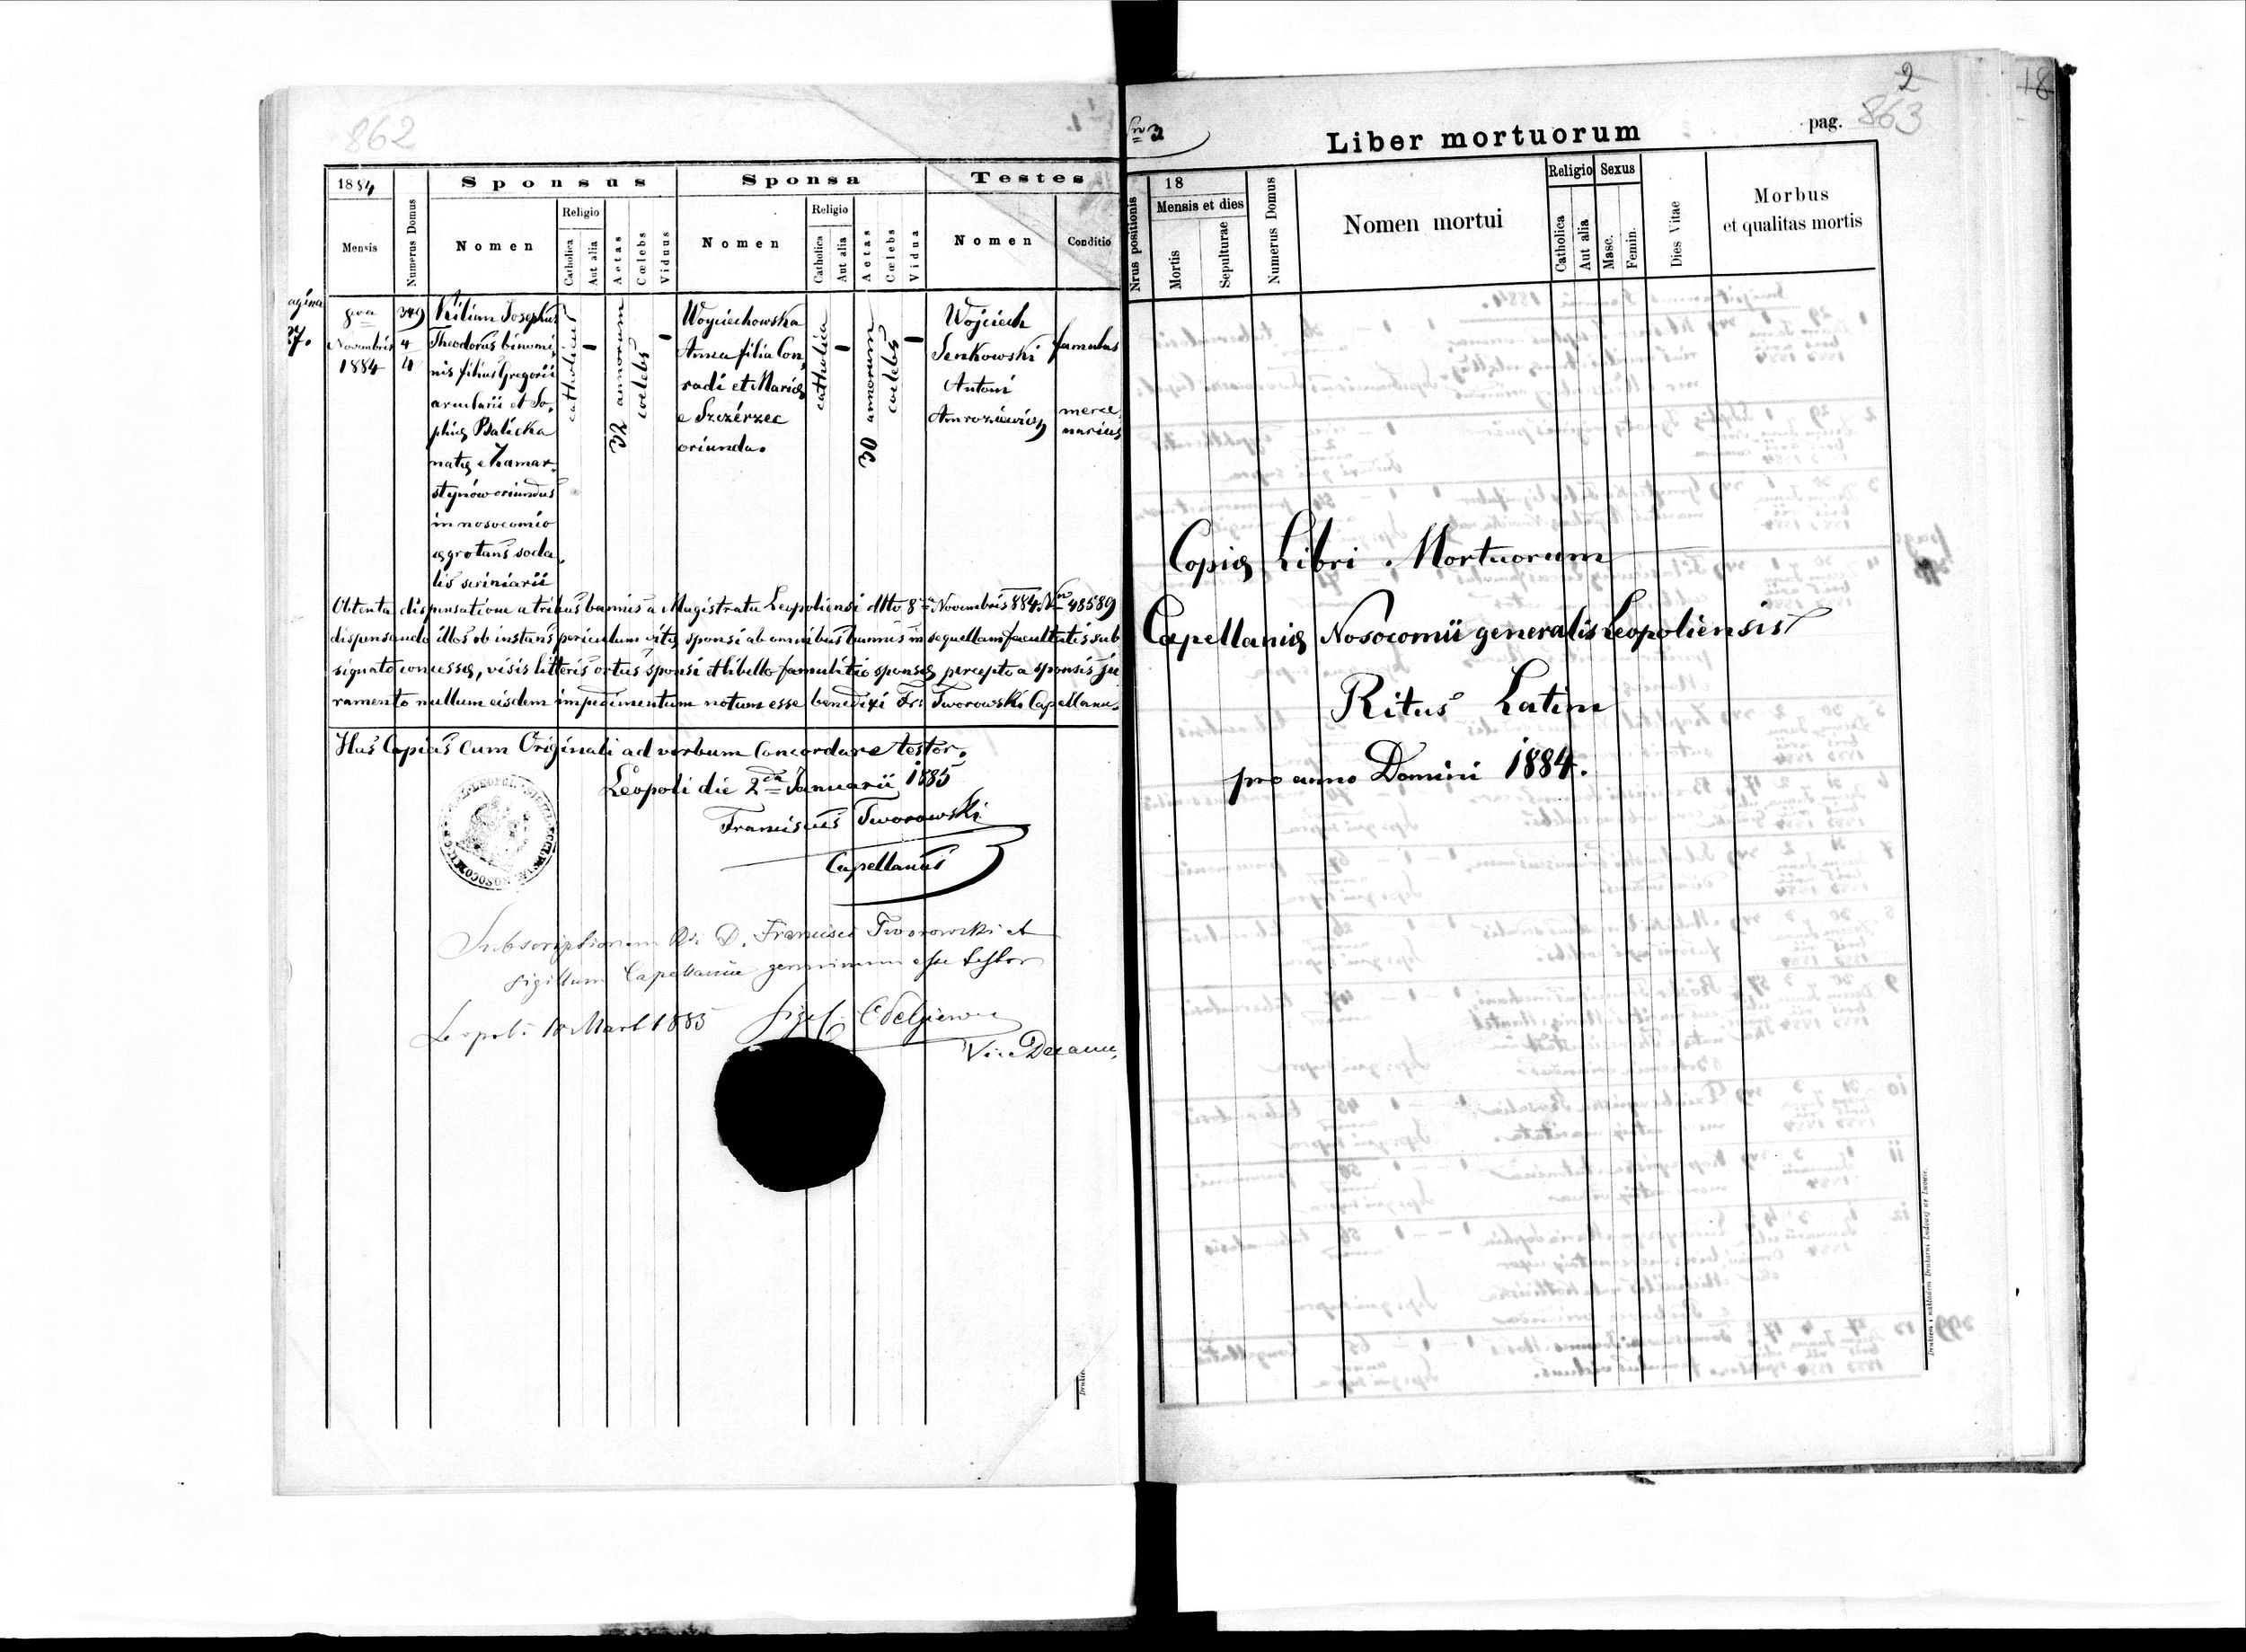 862
1884
Mensis
Numerus Domus
Sponsus
Nomen
Religio
Catholica
Aut alia
Aetas
Cœlebs
Viduus
Sponsa
Nomen
Religio
Catholica
Aut alia
Aetas
Cœlebs
Vidua
Testes
Nomen
Conditio
agina
27.
Novembris
1884
349
4
4
Kilian Josephus
Theodorus binomi
nis filius Gregorii
arcularii et So
phiæ Balicka
natæ e Zamar
stynów oriundus
in nosocomio
ægrotans soda
lis scriniarii
catholicus
-
32 annorum
coelebs
-
Woyciechowska
Anna filia Con
radi et Mariæ
e Szczérzec
oriunda.
catholica
-
30 annorum
coelebs
-
Wojciech
Senkowski
famulus
Antoni
Amroziewicz
merce
narius
Obtenta dispensatione a tribus bannis a Magistratu Leopoliensi ddto 8 Novembris 884 Nro 48589
dispensando illos ob instans periculum vitæ sponsi ab omnibus bannis in sequellam facultatis sub
signato concessæ, visis litteris ortus sponsi et libello famulitio sponsæ percepto a sponsis ju
ramento nullum eisdem impedimentum notum esse benedixi Fr: Tworowski Capellanus
Has Copias cum Originali ad verbum Concordare testor.
Leopoli die 2da Januarii 1885
Franciscus Tworowski
Capellanus
Subscriptionem D. Francisci Tworowski et
sigillum Capellaniæ genuinum esse testor
Leopoli 10 Mart 1885
Vice Decanus
2
863
18
Liber mortuorum
pag.
Nrus positionis
18
Mensis et dies
Mortis
Sepulturae
Numerus Domus
Nomen mortui
Religio
Catholica
Aut alia
Sexus
Masc.
Femin.
Dies Vitae
Morbus
et qualitas mortis
Copiæ Libri Mortuorum
Capellaniæ Nosocomii generalis Leopoliensis
Ritus Latini
pro anno Domini 1884.
Drukiem i nakładem Drukarni Ludowej we Lwowie.